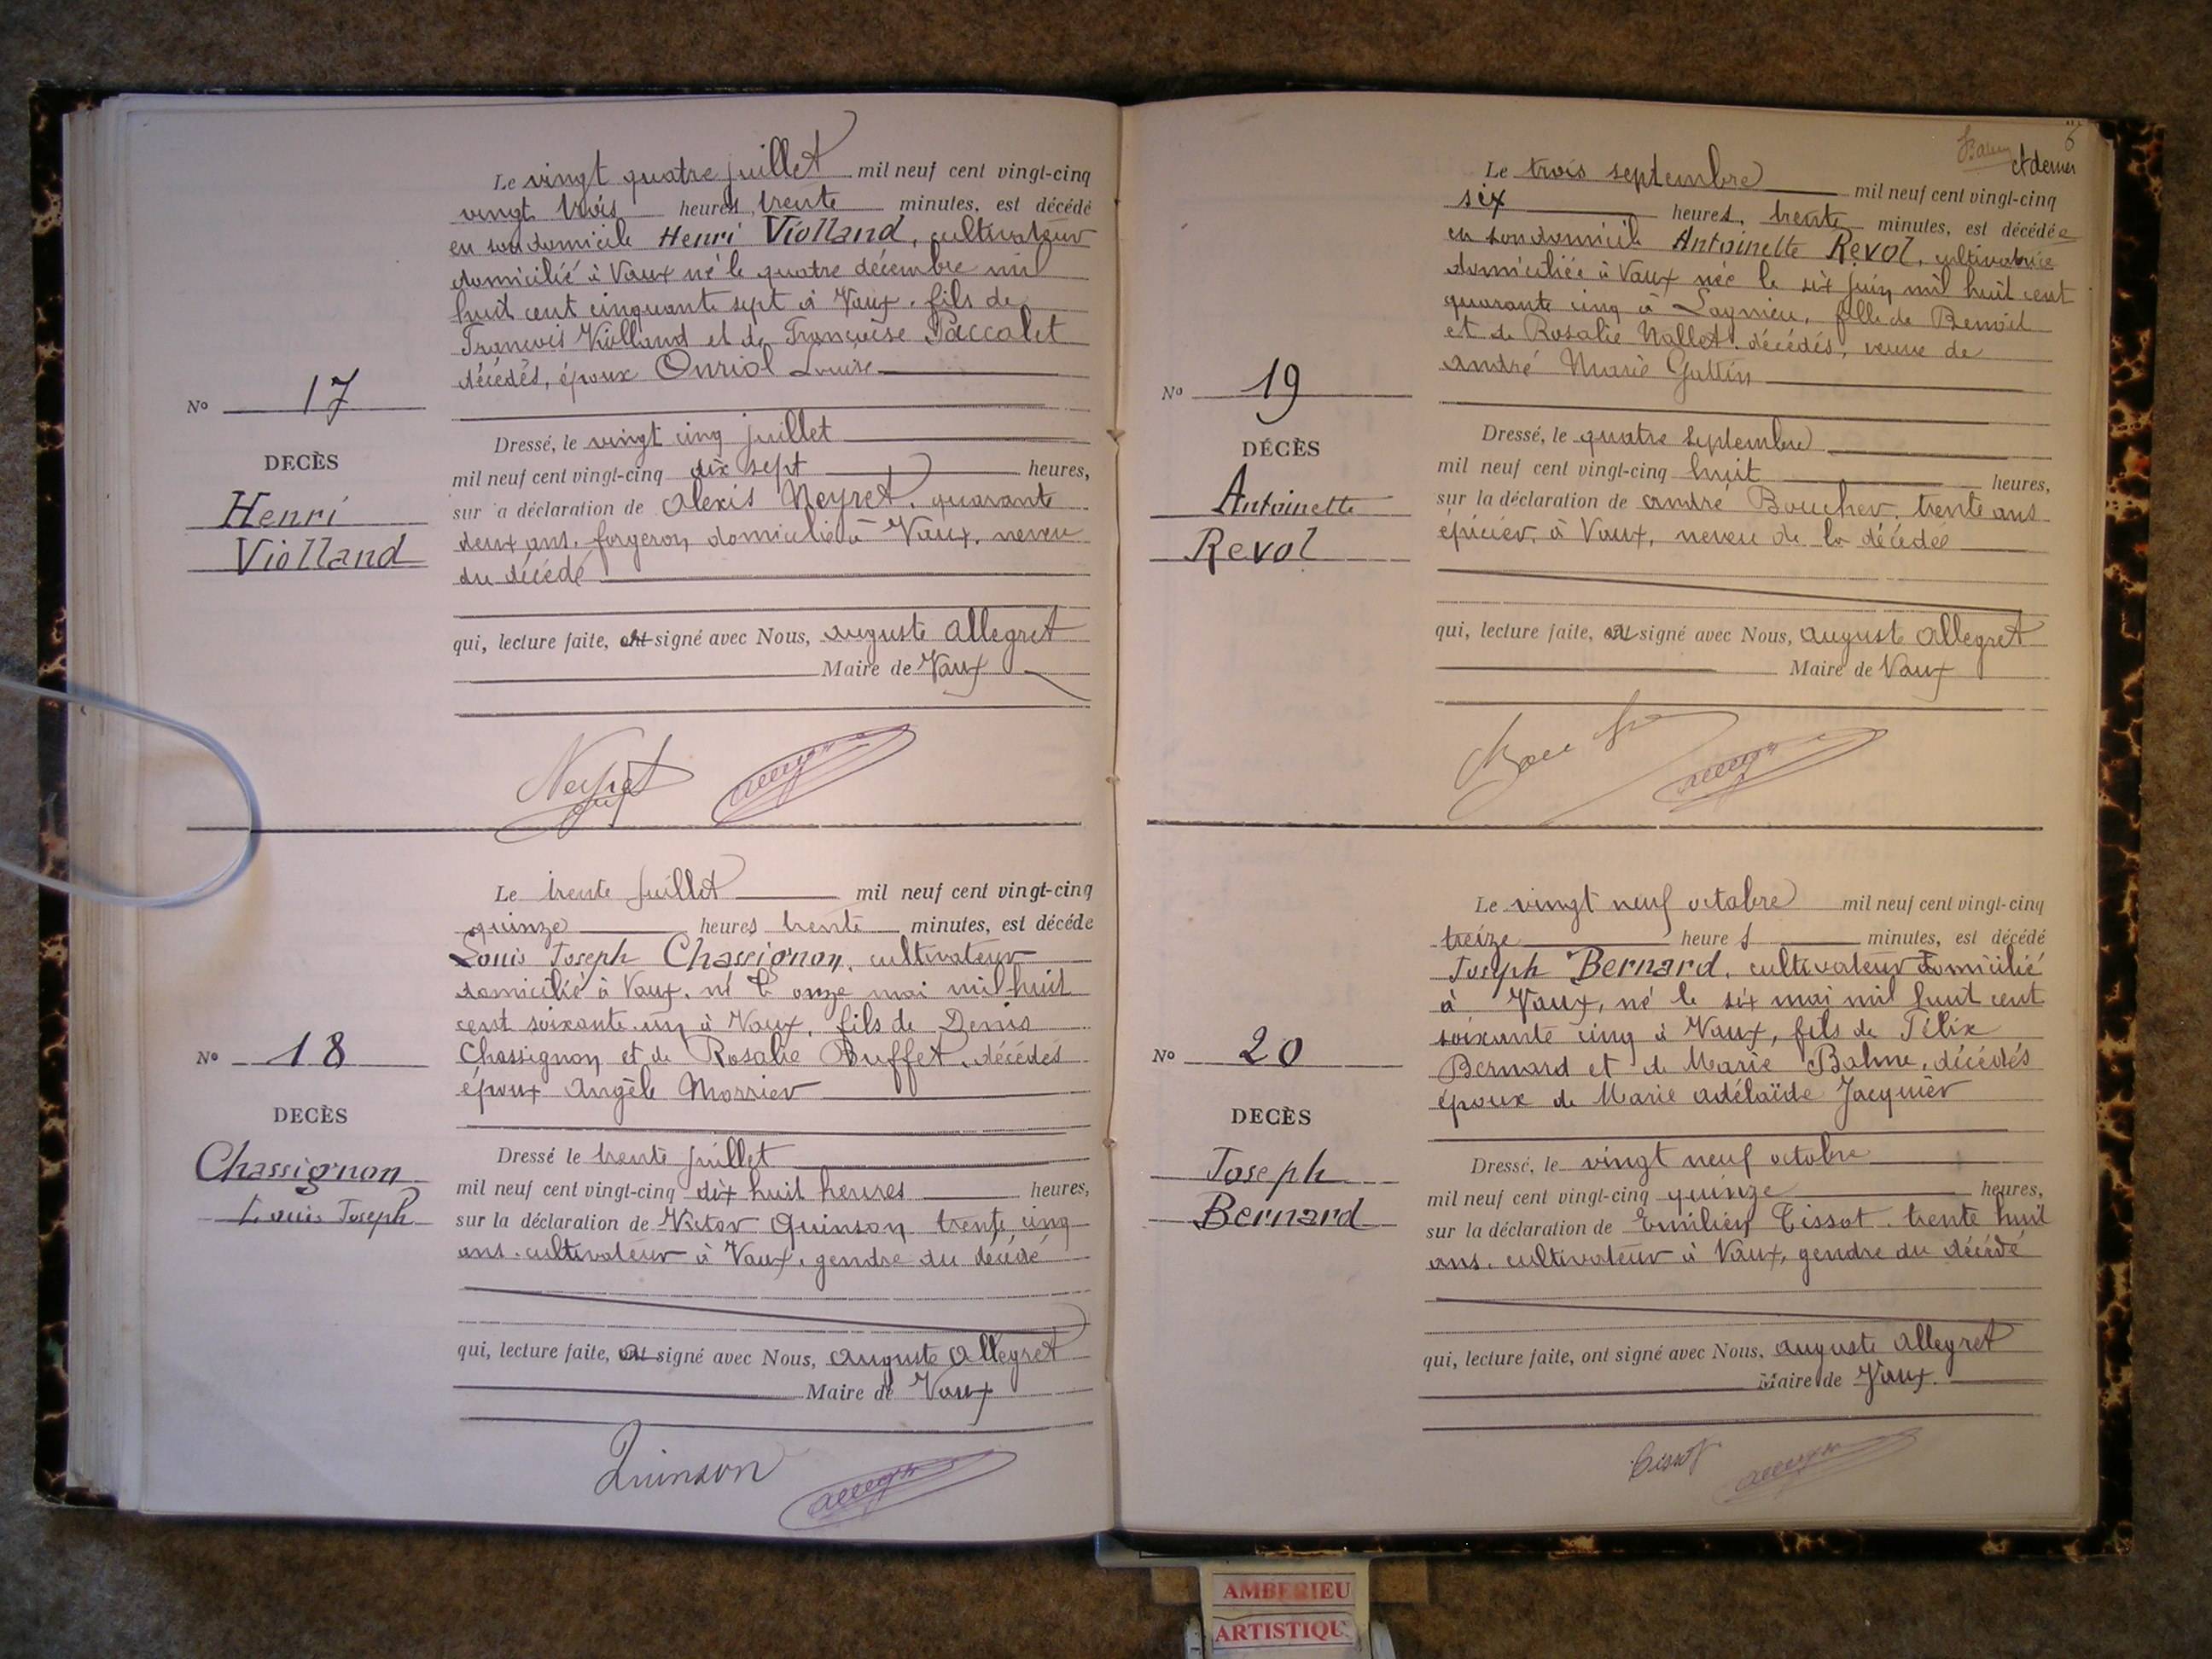 Le vingt quatre juillet mil neuf cent vingt-cinq
vingt trois heures, trente minutes, est décédé
en son domicile Henri Violland, cultivateur
domicilié à Vaux né le quatre décembre mil
huit cent cinquante sept à Vaux, fils de
François Violland et de Françoise Paccalet
décédés, époux Onriol Louise
No 17
DECÈS
Henri
Violland
Dressé, le vingt cinq juillet
mil neuf cent vingt-cinq dix sept heures,
sur a déclaration de Alexis Neyret, quarante
deux ans, forgeron, domicilié à Vaux, neveu
du décédé
qui, lecture faite, signé avec Nous, auguste allegret
Maire de Vaux
Neyret
Le trente juillet mil neuf cent vingt-cinq
quinze heures trente minutes, est décéde
Louis Joseph Chassignon, cultivateur
domicilié à Vaux, né le onze mai mil huit
cent soixante un à Vaux, fils de Denis
Chassignon et de Rosalie Buffet, décédés
époux Angèle Morrier
No 18
DECÈS
Chassignon
Louis Joseph
Dressé le trente juillet
mil neuf cent vingt-cinq dix huit heures heures,
sur la déclaration de Victor Quinson, trente cinq
ans, cultivateur à Vaux, gendre du décédé
qui, lecture faite, signé avec Nous, auguste allegret
Maire de Vaux
Quinson
6
et dernier
Le trois septembre mil neuf cent vingt-cinq
six heures, trente minutes, est décédée
en son domicile Antoinette Revol, cultivatrice
domiciliée à Vaux née le six juin mil huit cent
quarante cinq à Lagnieu, fille de Benoit
et de Rosalie Nallet, décédés, veuve de
andré Marie Gattin
No 19
DÉCÈS
Antoinette
Revol
Dressé, le quatre septembre
mil neuf cent vingt-cinq huit heures,
sur la déclaration de andré Boucher, trente ans
épicier, à Vaux, neveu de la décédée
qui, lecture faite, signé avec Nous, auguste allegret
Maire de Vaux
Le vingt neuf octobre mil neuf cent vingt-cinq
treize heures minutes, est décédé
Joseph Bernard, cultivateur domicilié
à Vaux, né le six mai mil huit cent
soixante cinq à Vaux, fils de Félix
Bernard et de Marie Balme, décédés
époux de Marie adélaïde Jacquier
No 20
DECÈS
Joseph
Bernard
Dressé, le vingt neuf octobre
mil neuf cent vingt-cinq quinze heures,
sur la déclaration de Emilien Tissot, trente huit
ans, cultivateur à Vaux, gendre du décédé
qui, lecture faite, ont signé avec Nous, auguste allegret
Maire de Vaux.
Tissot
AMBERIEU
ARTISTIQU